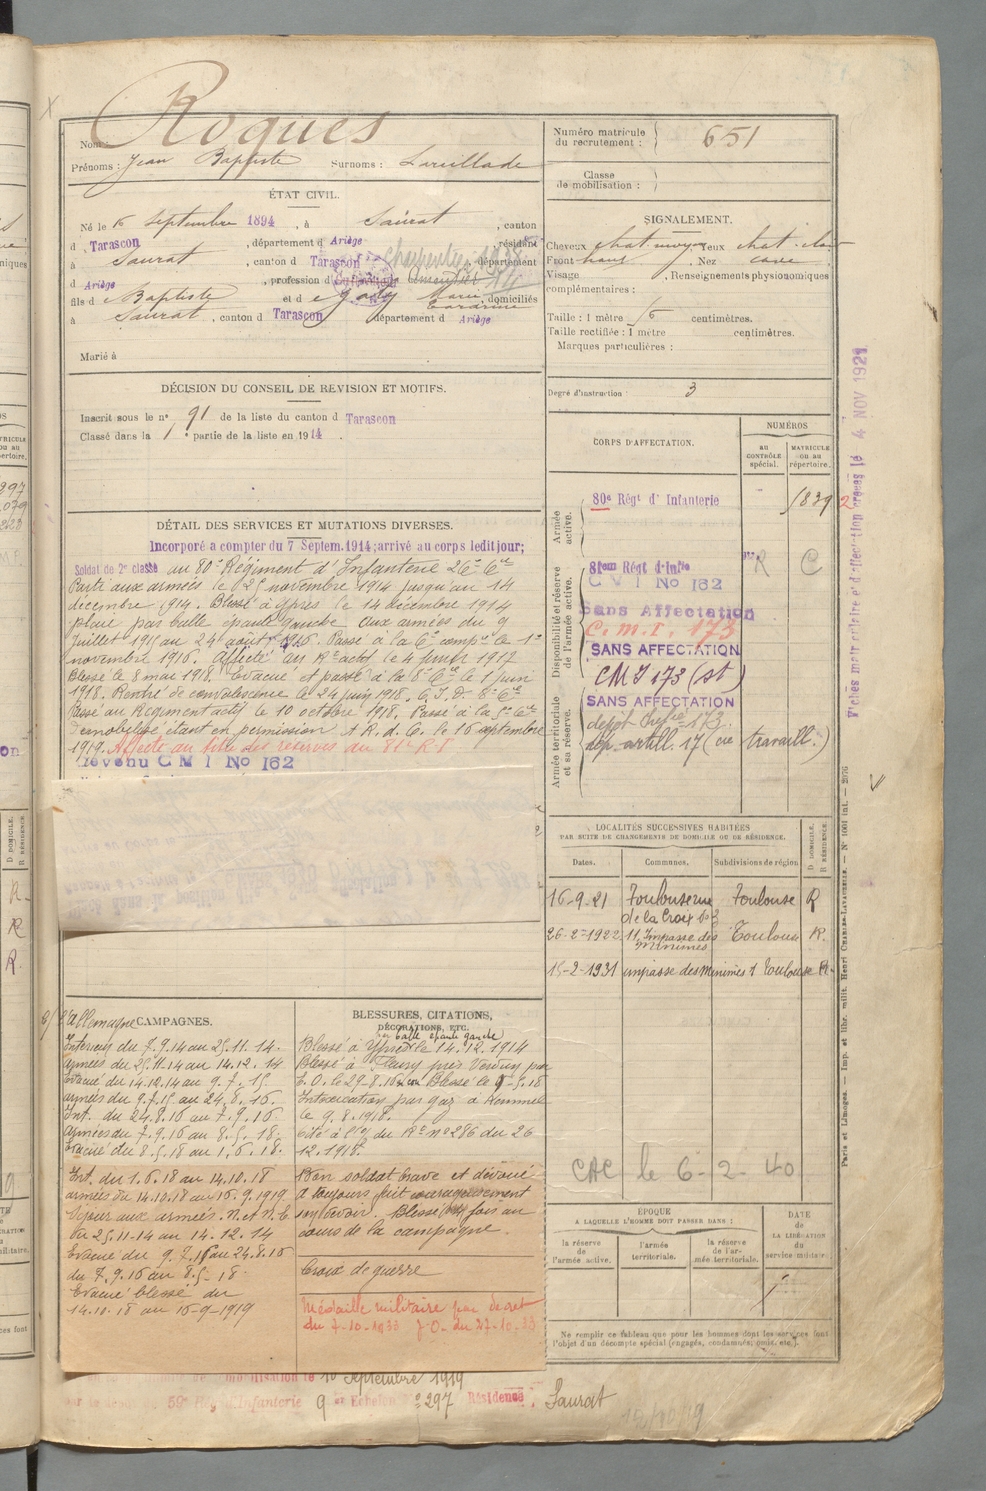 Roques
Nom :
Prénoms : Jean Baptiste Surnoms : Larillade
ÉTAT CIVIL.
Né le 6 septembre 1894, à Saurat, canton
d Tarascon, département d Ariège, résidant
à Saurat, canton d Tarascon, département
d Ariège, profession d Cultivateur
charpentier
fils d e Baptiste et d e Marie, domiciliés
à Saurat, canton d Tarascon département d Ariège
Marié à
DÉCISION DU CONSEIL DE REVISION ET MOTIFS.
Inscrit sous le n° 91 de la liste du canton d Tarascon
Classé dans la 1e partie de la liste en 1914.
DÉTAIL DES SERVICES ET MUTATIONS DIVERSES.
Incorporé a compter du 7 Septem. 1914; arrivé au corps ledit jour;
Soldat de 2e classe au 80e Régiment d'Infanterie 26e Cie
Parti aux armées le 25 novembre 1914 jusqu'au 14
décembre 1914. Blessé à Ypres le 14 décembre 1914
plaie par balle épaule gauche aux armées du 9
Juillet 1915 au 24 août 1916. Passé à la 6e compie le 1er
novembre 1916. Affecté au Rt actif le 4 juin 1917
Blessé le 8 mai 1918. Evacué et passé à la 8e Cie le 1 juin
1918. Rentré de convalescence le 24 juin 1918. C.I.D. 8e Cie
Passé au Régiment actif le 10 octobre 1918. Passé à la 5e Cie
Démobilisé étant en permission A.R.d.C. le 16 septembre
1919. Affecté au titre des réserves au 81e R.I
devenu C M I No 162
CAMPAGNES.
C/ l'Allemagne
Intérieur du 7.9.14 au 25.11.14.
armées du 25.11.14 au 14.12.14
Evacué du 14.12.14 au 9.7.15.
armées du 9.7.15 au 24.8.16.
Int. du 24.8.16 au 7.9.16.
Armées du 7.9.16 au 8.5.18.
Evacué du 8.5.18 au 1.6.18.
Int. du 1.6.18 au 14.10.18
armées du 14.10.18 au 16.9.1919
Séjour aux armées. N. et N.E
du 25.11-14 au 14.12.14
Evacué du 9.7.15 au 24.8.16
du 7.9.16 au 8.5-18.
Evacué blessé du
14.10.18 au 16-9-1919
BLESSURES, CITATIONS,
DÉCORATIONS, ETC.
par balle épaule gauche
Blessé à Ypres le 14.12.1914
Blessé à Fleury près Verdun par
E.O. le 29-8.16 Blessé le 9-5.18
Intoxication par gaz à Kemmel
le 9.8.1918.
Cité à l'O/ du Rt n° 286 du 26
12.1918.
Bon soldat brave et dévoué
A toujours fait courageusement
son devoir. Blessé fois au
cours de la campagne.
Croix de guerre
Médaille militaire par décret
du 7-10-1933 J.O. du 27-10.33
mobilisation le 16 Septembre 1919
59e Rég. d'Infanterie 9 me Echelon n° 297 Résidence : Saurat
15/10/19
Numéro matricule
du recrutement : 651
Classe
de mobilisation :
SIGNALEMENT.
Cheveux chat. moyen yeux chat. clair
Front haut, Nez cave,
Visage, Renseignements physionomiques
complémentaires :
Taille : 1 mètre 56 centimètres.
Taille rectifiée : 1 mètre centimètres.
Marques particulières :
Degré d'instruction : 3
CORPS D'AFFECTATION.
NUMÉROS
AU CONTRÔLE spécial.
MATRICULE OU AU répertoire.
Armée active.
80e Régt d' Infanterie 1839 2
Disponibilité et réserve de l'armée active.
81em Régt d'Infie R C
C M I No 162
Sans Affectation
C.M.I. 173
SANS AFFECTATION
CMI 173 (st)
Armée territoriale et sa réserve.
SANS AFFECTATION
dépôt Infie 173.
dép. artill. 17 (cie travaill.)
LOCALITÉS SUCCESSIVES HABITÉES
PAR SUITE DE CHANGEMENTS DE DOMICILE OU DE RÉSIDENCE.
Dates. Communes. Subdivisions de région
D. DOMICILE.
R. RÉSIDENCE.
16-9-21 Toulouse rue Toulouse R
de la Croix
26-2-1922 11, Impasse des Toulouse R.
Minimes
15-2-1931 impasse des Minimes 1 Toulouse R.
CAC le 6-2-40
ÉPOQUE
A LAQUELLE L'HOMME DOIT PASSER DANS :
la réserve de l'armée active.
l'armée territoriale.
la réserve de l'armée territoriale.
DATE DE LA LIBÉRATION DU service militaire.
Ne remplir ce tableau que pour les hommes dont les services font
l'objet d'un décompte spécial (engagés, condamnés, omis, etc.).
4 NOV 1921
Paris et Limoges. — Imp. et libr. milit. Henri CHARLES-LAVAUZELLE. — N° 1001 int. — 2076